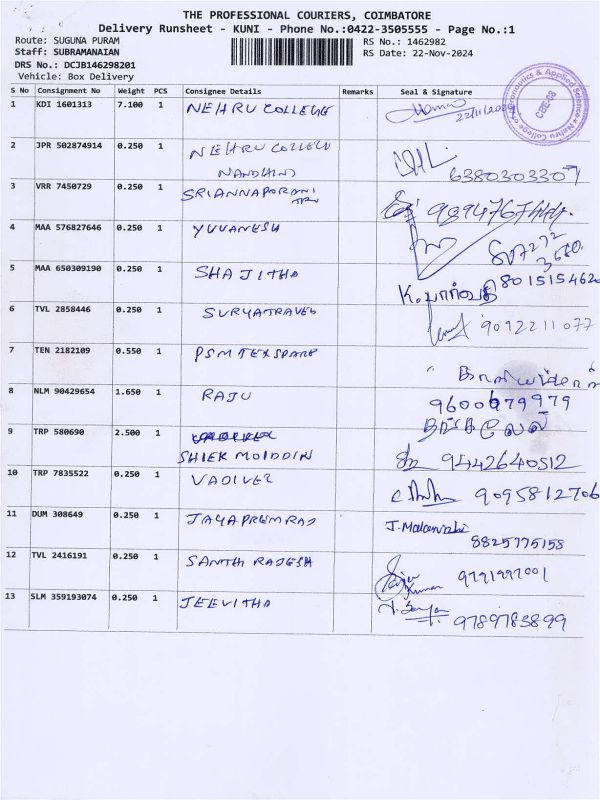 THE PROFESSIONAL COURIERS, COIMBATORE
Delivery Runsheet - KUNI - Phone No.:0422-3505555 - Page No.:1
Route: SUGUNA PURAM RS No.: 1462982
Staff: SUBRAMANAIAN RS Date: 22-Nov-2024
DRS No.: DCJB146298201
Vehicle: Box Delivery
S No Consignment No Weight PCS Consignee Details Remarks Seal & Signature
1 KDI 1601313 7.100 1 NEHRU COLLEGE 22/11/2024
CBE-08
2 JPR 502874914 0.250 1 NEHRU COLLEGE
NANDHINI 6380303307
3 VRR 7450729 0.250 1 SRIANNAPORANI
4 MAA 576827646 0.250 1 YUVANESH
5 MAA 650309190 0.250 1 SHAJITHA K. பார்வதி 8015154620
6 TVL 2858446 0.250 1 SURYATRAVEL 9092211077
7 TEN 2182109 0.550 1 PSM TEX SPARE
8 NLM 90429654 1.650 1 RAJU 9600679979
9 TRP 580690 2.500 1
SHIEK MOIDDIN 9442640512
10 TRP 7835522 0.250 1 VADIVEL 9095812706
11 DUM 308649 0.250 1 JAYAPREMRAJ
8825775158
12 TVL 2416191 0.250 1 SANTH RAJESH 9791997001
13 SLM 359193074 0.250 1 JEEVITHA 9789783899